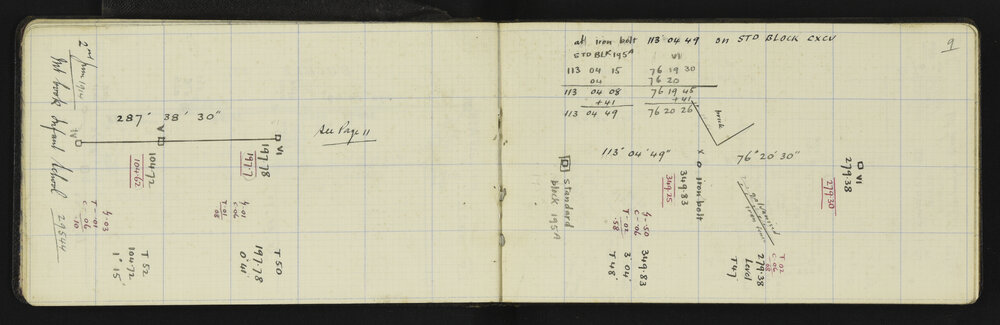 2nd June 1914
Infant School 29544
287° 38' 30"
IV
A
VI
104.72
104.62
197.78
197.7
g .03
T .01
C .06
.10
g .01
C .06
T .01
.08
T 52
104.72
1° 15'
T 50
197.78
0° 41'
See Page 11
9
at iron bolt 113° 04 49 on STD BLOCK CXCV
STD BLK 195A
VI
113 04 15
04
113 04 08
+41
113 04 49
76 19 30
76 20
76 19 45
+41
76 20 26
brick
113° 04' 49"
76° 20' 30"
standard
block 195A
x o iron bolt
349.83
349.25
g .50
C .06
T .02
.58
349.83
3° 04'
T 48
galvanised
iron fence
VI
279.38
279.30
T .02
C .06
.08
279.38
Level
T 47